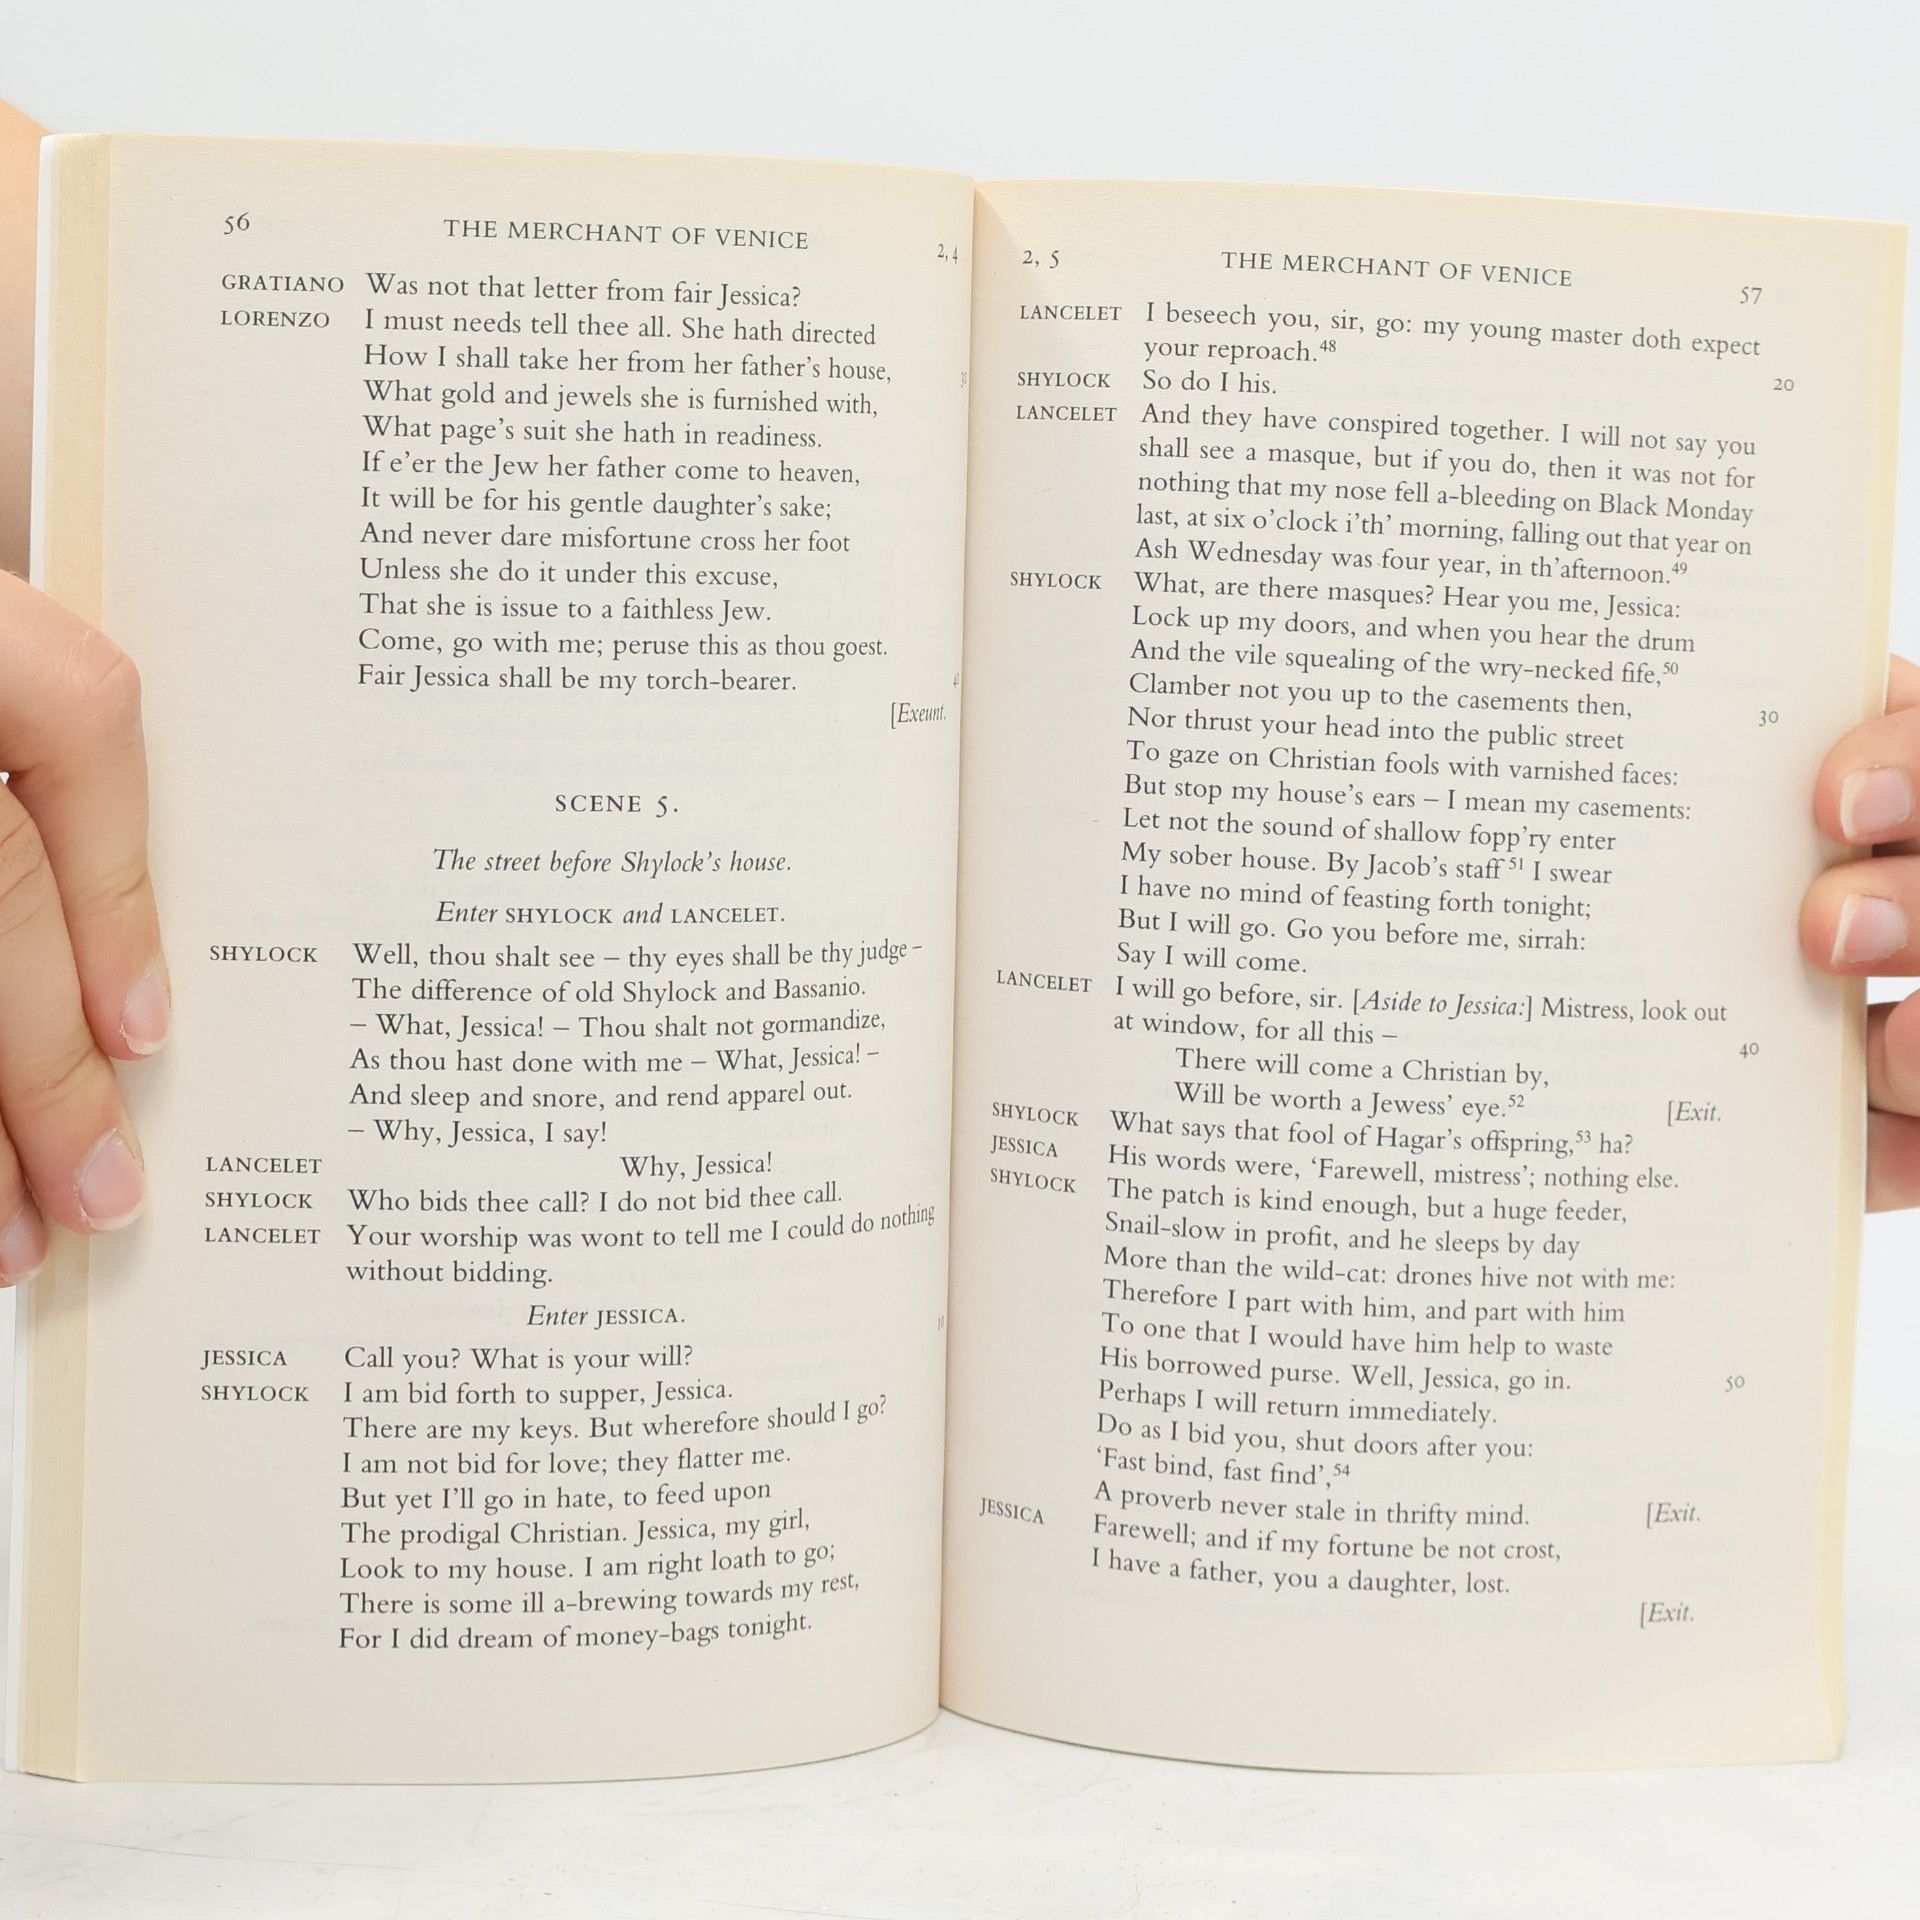 56
THE MERCHANT OF VENICE
2, 4
GRATIANO Was not that letter from fair Jessica?
LORENZO I must needs tell thee all. She hath directed
How I shall take her from her father's house,
30
What gold and jewels she is furnished with,
What page's suit she hath in readiness.
If e'er the Jew her father come to heaven,
It will be for his gentle daughter's sake;
And never dare misfortune cross her foot
Unless she do it under this excuse,
That she is issue to a faithless Jew.
Come, go with me; peruse this as thou goest.
Fair Jessica shall be my torch-bearer.
40
[Exeunt.
SCENE 5.
The street before Shylock's house.
Enter SHYLOCK and LANCELET.
SHYLOCK Well, thou shalt see – thy eyes shall be thy judge –
The difference of old Shylock and Bassanio.
– What, Jessica! – Thou shalt not gormandize,
As thou hast done with me – What, Jessica! –
And sleep and snore, and rend apparel out.
– Why, Jessica, I say!
LANCELET Why, Jessica!
SHYLOCK Who bids thee call? I do not bid thee call.
LANCELET Your worship was wont to tell me I could do nothing
without bidding.
Enter JESSICA.
10
JESSICA Call you? What is your will?
SHYLOCK I am bid forth to supper, Jessica.
There are my keys. But wherefore should I go?
I am not bid for love; they flatter me.
But yet I'll go in hate, to feed upon
The prodigal Christian. Jessica, my girl,
Look to my house. I am right loath to go;
There is some ill a-brewing towards my rest,
For I did dream of money-bags tonight.
2, 5
THE MERCHANT OF VENICE
57
LANCELET I beseech you, sir, go: my young master doth expect
your reproach.48
SHYLOCK So do I his. 20
LANCELET And they have conspired together. I will not say you
shall see a masque, but if you do, then it was not for
nothing that my nose fell a-bleeding on Black Monday
last, at six o'clock i'th' morning, falling out that year on
Ash Wednesday was four year, in th'afternoon.49
SHYLOCK What, are there masques? Hear you me, Jessica:
Lock up my doors, and when you hear the drum
And the vile squealing of the wry-necked fife,50
Clamber not you up to the casements then,
Nor thrust your head into the public street 30
To gaze on Christian fools with varnished faces:
But stop my house's ears – I mean my casements:
Let not the sound of shallow fopp'ry enter
My sober house. By Jacob's staff51 I swear
I have no mind of feasting forth tonight;
But I will go. Go you before me, sirrah:
Say I will come.
LANCELET I will go before, sir. [Aside to Jessica:] Mistress, look out
at window, for all this –
There will come a Christian by, 40
Will be worth a Jewess' eye.52 [Exit.
SHYLOCK What says that fool of Hagar's offspring,53 ha?
JESSICA His words were, 'Farewell, mistress'; nothing else.
SHYLOCK The patch is kind enough, but a huge feeder,
Snail-slow in profit, and he sleeps by day
More than the wild-cat: drones hive not with me:
Therefore I part with him, and part with him
To one that I would have him help to waste
His borrowed purse. Well, Jessica, go in.
Perhaps I will return immediately. 50
Do as I bid you, shut doors after you:
'Fast bind, fast find',54
A proverb never stale in thrifty mind. [Exit.
JESSICA Farewell; and if my fortune be not crost,
I have a father, you a daughter, lost.
[Exit.